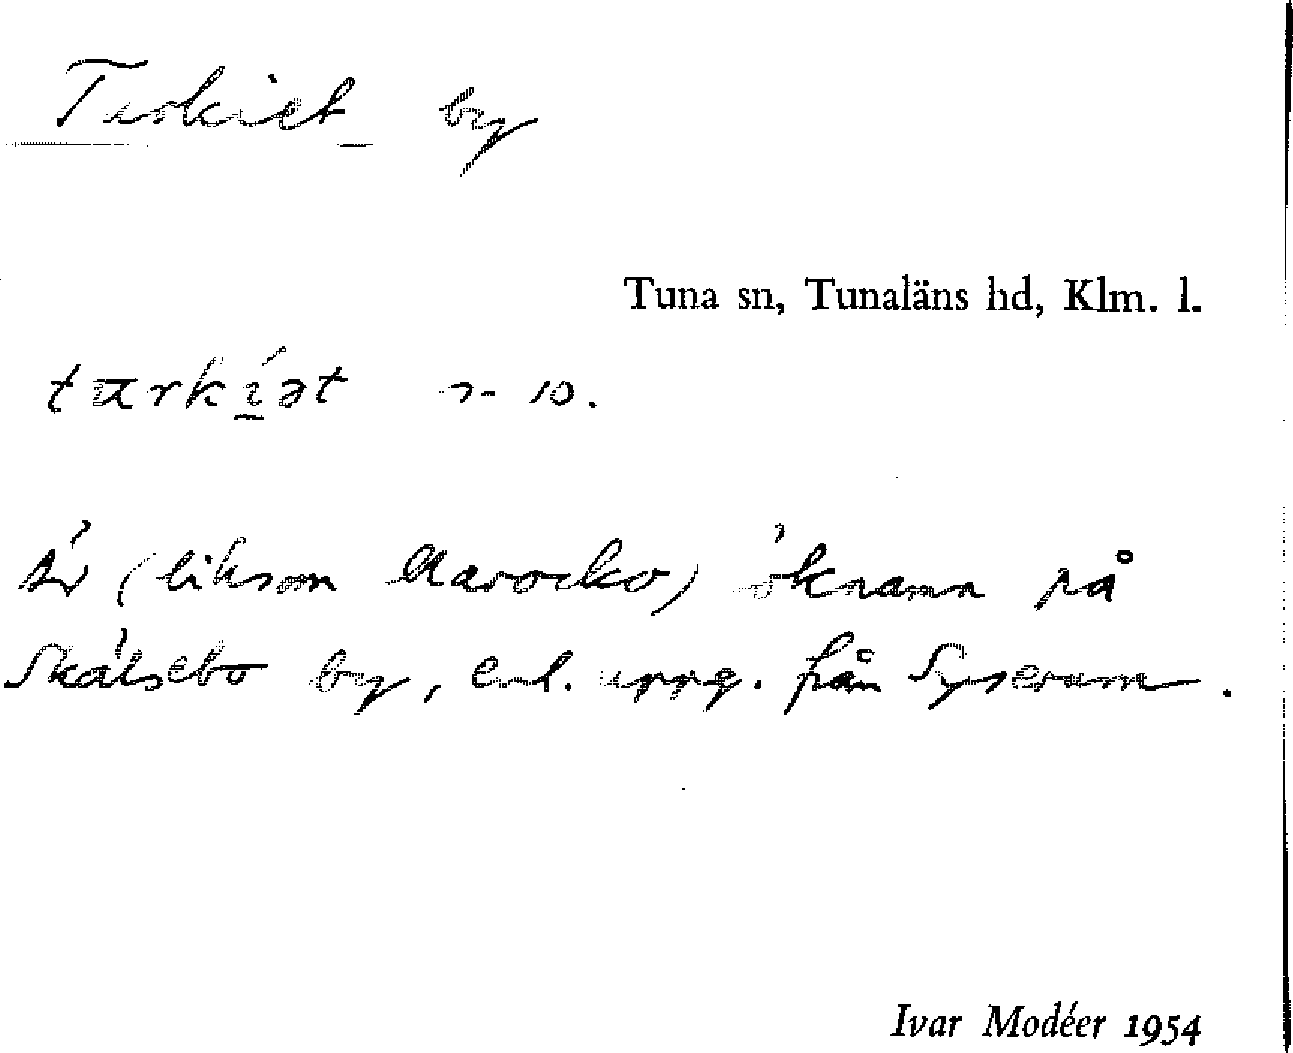 Turkiet by
Tuna sn, Tunaläns hd, Klm. l.
turkíət n- 10.
Är (liksom Marocko) öknamn på
Skälsebo by, enl. uppg. från Syserum.
Ivar Modéer 1954